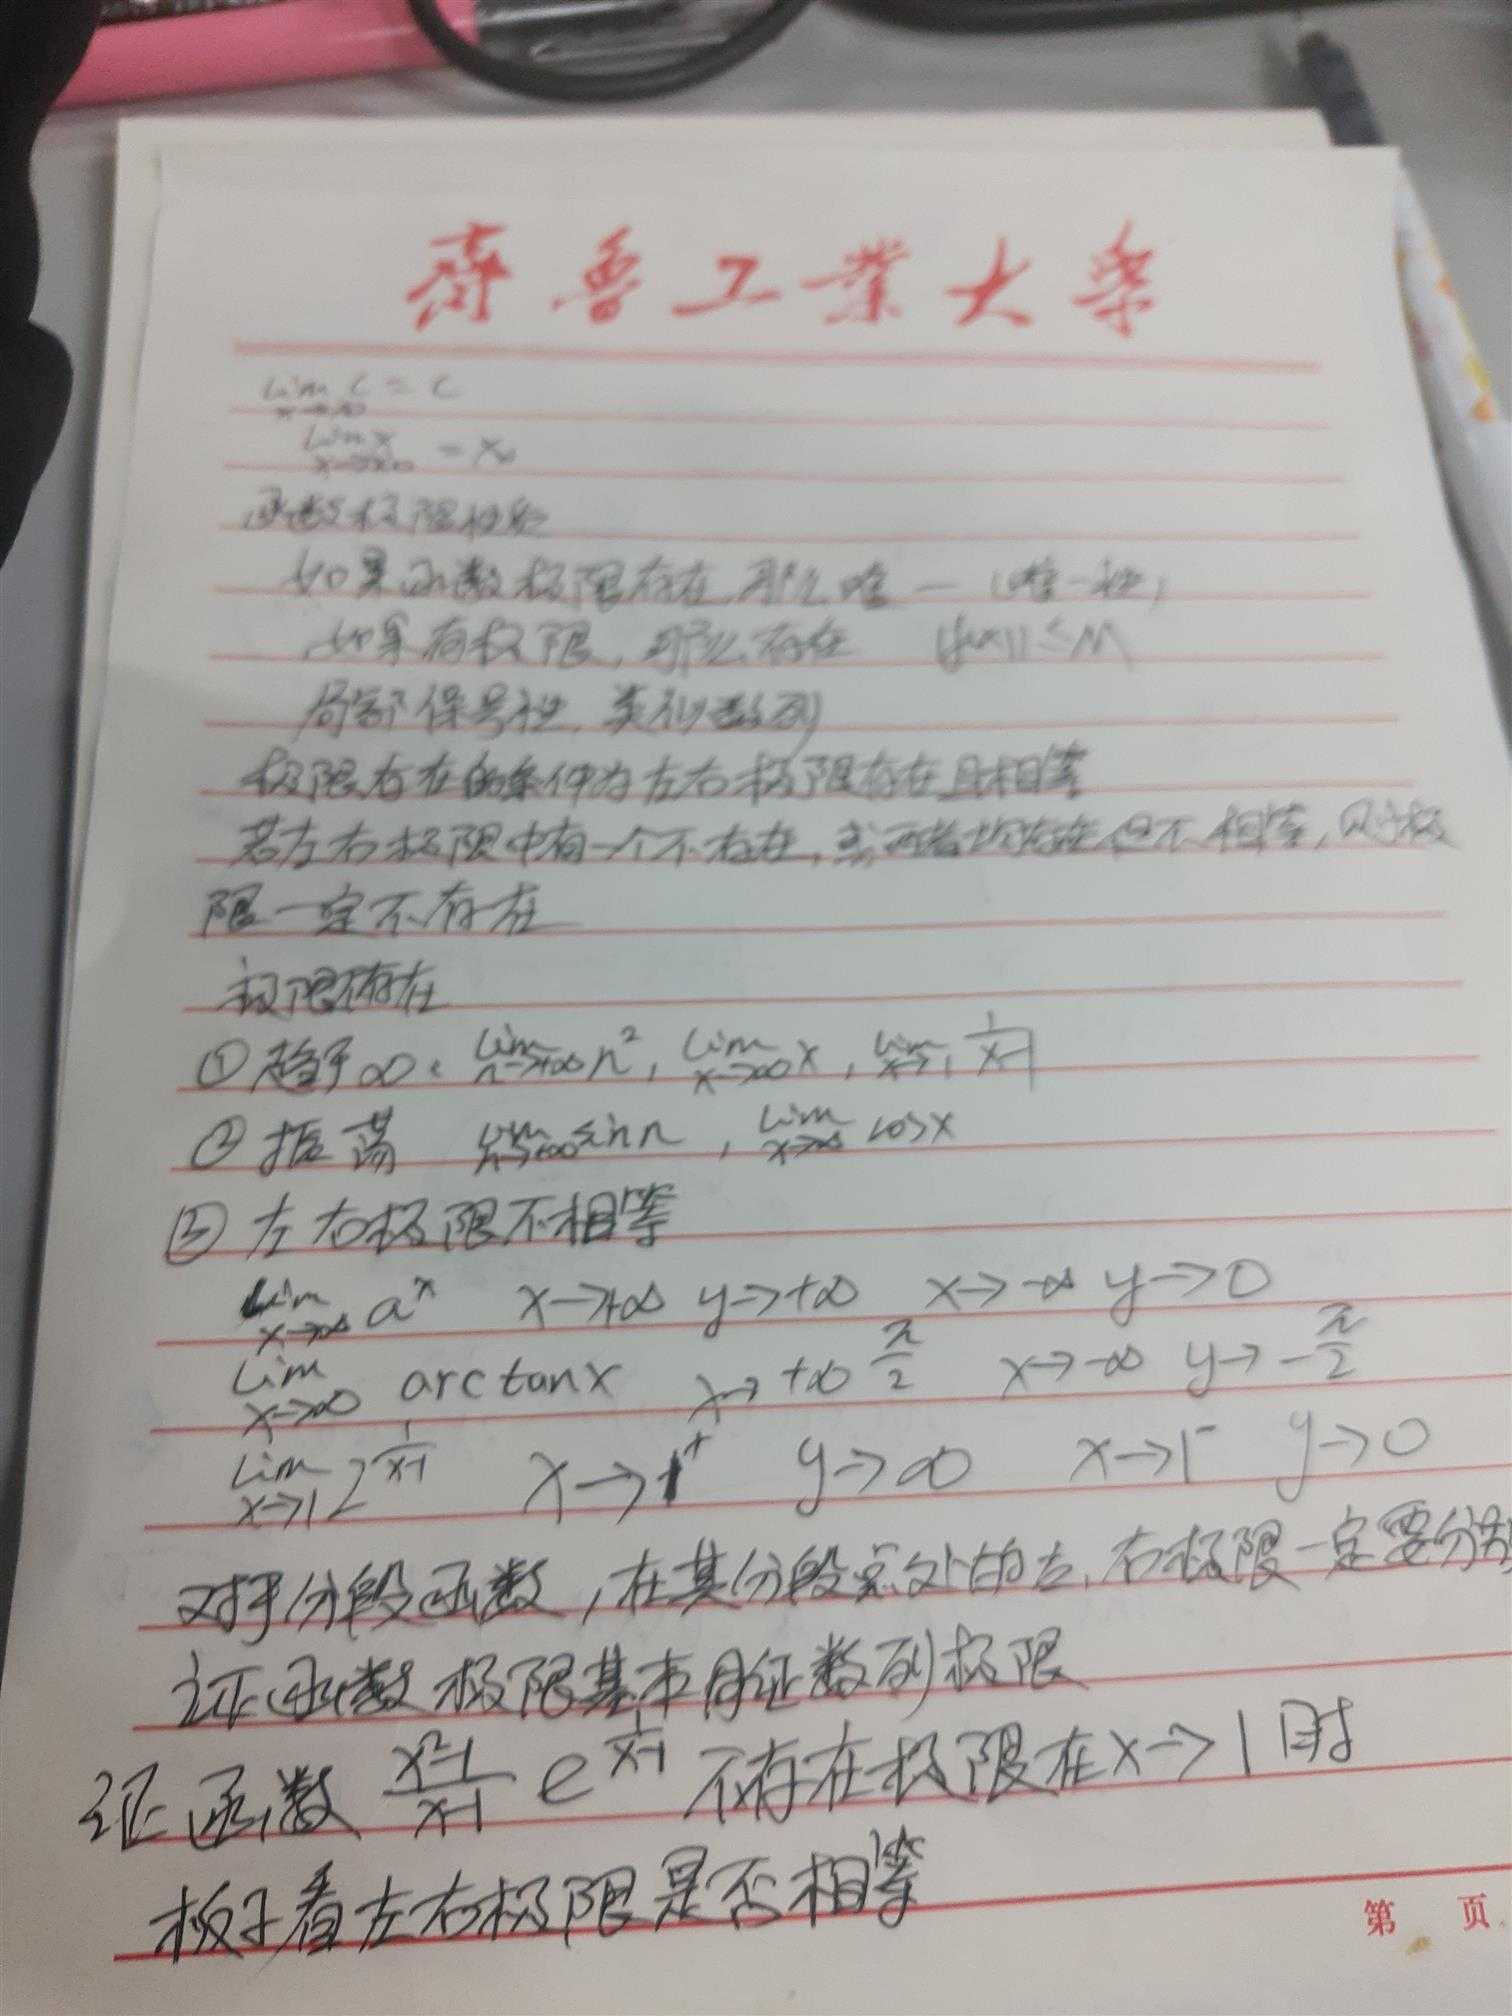 齊魯工業大學
lim x→x0 C = C
lim x→x0 x = x0
函数极限性质
如果函数极限存在,那么唯一(唯一性)
如果有极限,那么存在 |f(x)|≤M
局部保号性,类似数列
极限存在的条件为左右极限存在且相等
若左右极限中有一个不存在,或两者均存在但不相等,则极
限一定不存在
极限不存在
①趋于∞: lim n→+∞ n², lim x→∞ x, lim x→1 1/(x-1)
②振荡 lim n→+∞ sin n, lim x→∞ cosx
③左右极限不相等
lim x→∞ aˣ x→+∞ y→+∞ x→-∞ y→0
lim x→∞ arctanx x→+∞ π/2 x→-∞ y→-π/2
lim x→1 2^(1/(x-1)) x→1⁺ y→∞ x→1⁻ y→0
对于分段函数,在其分段点处的左、右极限一定要分别
证函数极限基本同证数列极限
证函数 (x²-1)/(x-1) e^(1/(x-1)) 不存在极限在x→1时
板子看左右极限是否相等
第 页